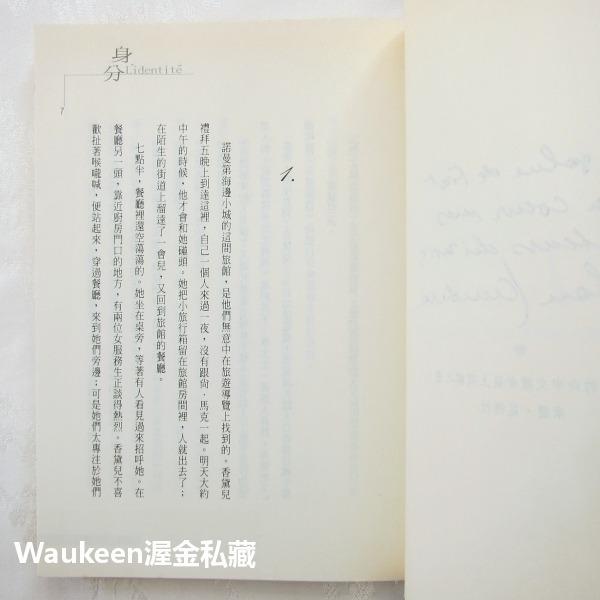 身分
L'identité
7
1.
諾曼第海邊小城的這間旅館，是他們無意中在旅遊導覽上找到的。香黛兒
禮拜五晚上到達這裡，自己一個人來過一夜，沒有跟尙‧馬克一起。明天大約
中午的時候，他才會和她碰頭。她把小旅行箱留在旅館房間裡，人就出去了；
在陌生的街道上溜達了一會兒，又回到旅館的餐廳。
七點半，餐廳裡還空蕩蕩的。她坐在桌旁，等著有人看見過來招呼她。在
餐廳另一頭，靠近廚房門口的地方，有兩位女服務生正談得熱烈。香黛兒不喜
歡扯著喉嚨喊，便站起來，穿過餐廳，來到她們旁邊；可是她們太專注於她們
Waukeen渥金私藏